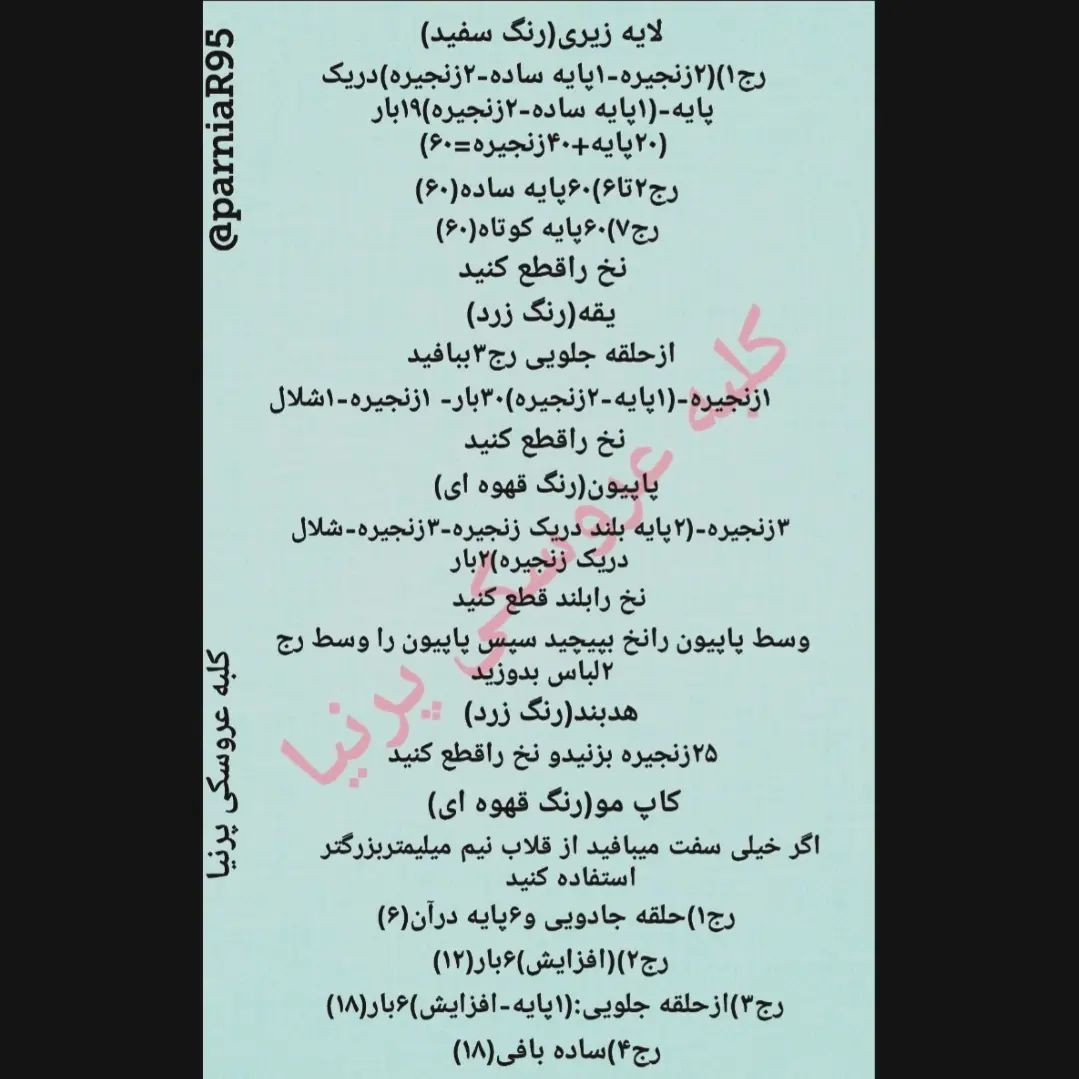 لایه زیری(رنگ سفید)
رج۱)(۲زنجیره-۱پایه ساده-۲زنجیره)دریک
پایه-(۱پایه ساده-۲زنجیره)۱۹بار
(۲۰پایه+۴۰زنجیره=۶۰)
رج۲تا۶)۶۰پایه ساده(۶۰)
رج۷)۶۰پایه کوتاه(۶۰)
نخ راقطع کنید
یقه(رنگ زرد)
ازحلقه جلویی رج۳ببافید
۱زنجیره-(۱پایه-۲زنجیره)۳۰بار- ۱زنجیره-۱شلال
نخ راقطع کنید
پاپیون(رنگ قهوه ای)
۳زنجیره-(۲پایه بلند دریک زنجیره-۳زنجیره-شلال
دریک زنجیره)۲بار
نخ رابلند قطع کنید
وسط پاپیون رانخ بپیچید سپس پاپیون را وسط رج
۲لباس بدوزید
هدبند(رنگ زرد)
۲۵زنجیره بزنیدو نخ راقطع کنید
کاپ مو(رنگ قهوه ای)
اگر خیلی سفت میبافید از قلاب نیم میلیمتربزرگتر
استفاده کنید
رج۱)حلقه جادویی و۶پایه درآن(۶)
رج۲)(افزایش)۶بار(۱۲)
رج۳)ازحلقه جلویی:(۱پایه-افزایش)۶بار(۱۸)
رج۴)ساده بافی(۱۸)
@parniaR95
کلبه عروسکی پرنیا
کلبه عروسکی پرنیا